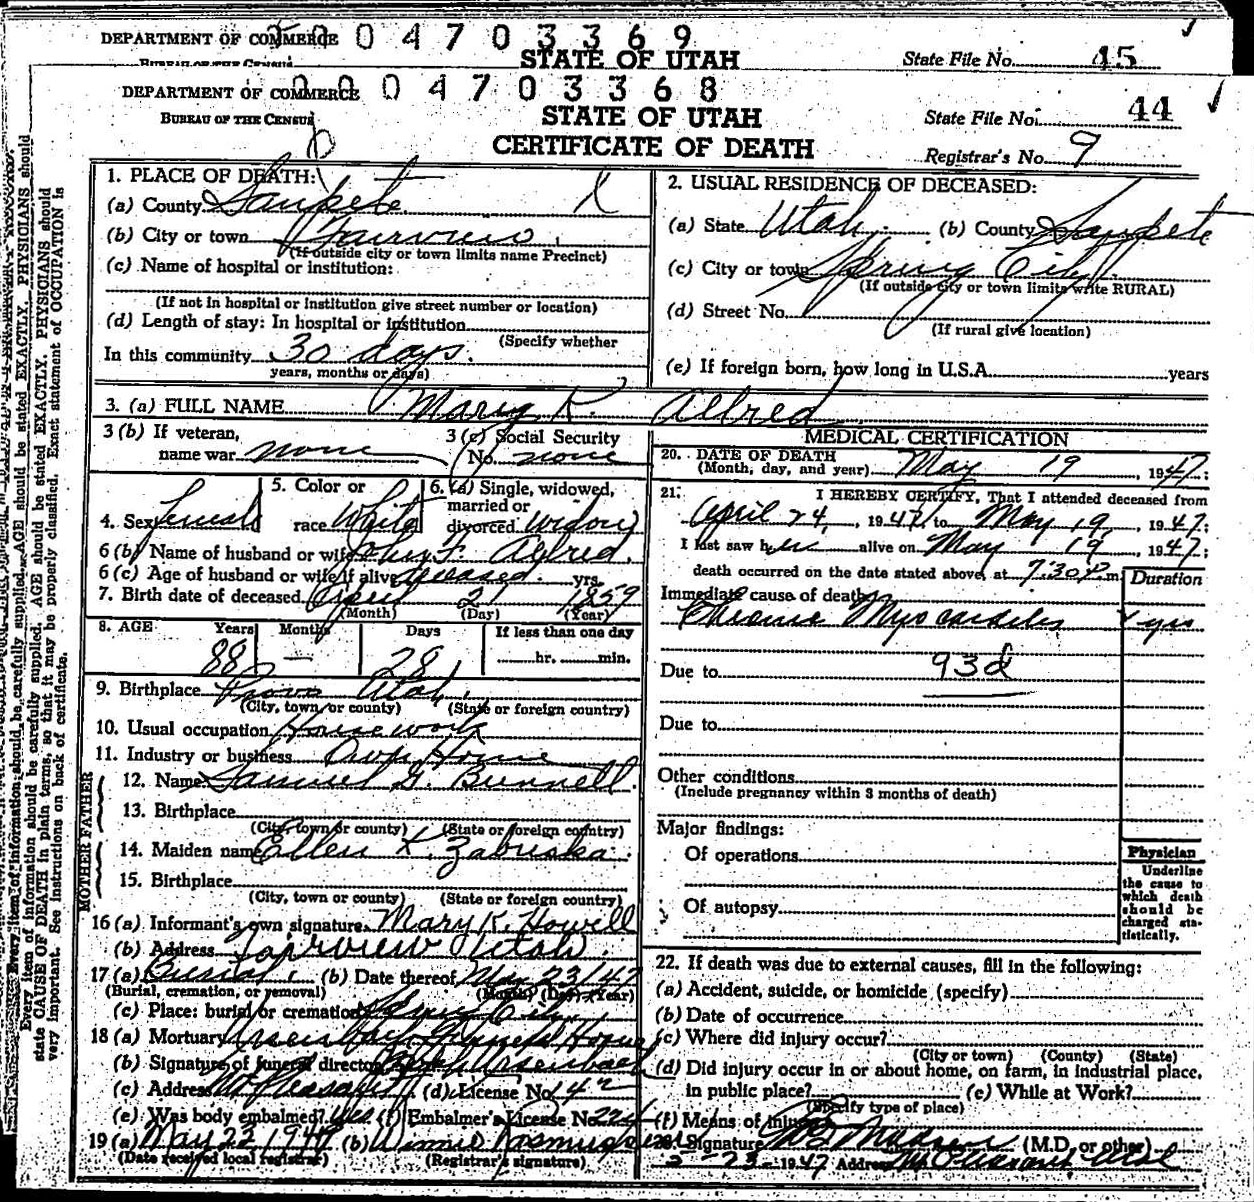 DEPARTMENT OF COMMERCE 0 0 4 7 0 3 3 6 9
BUREAU OF THE CENSUS STATE OF UTAH State File No. 45
DEPARTMENT OF COMMERCE 0 0 4 7 0 3 3 6 8
BUREAU OF THE CENSUS STATE OF UTAH State File No. 44
CERTIFICATE OF DEATH Registrar's No. 9
1. PLACE OF DEATH:
(a) County Sanpete
(b) City or town Fairview
(If outside city or town limits name Precinct)
(c) Name of hospital or institution:
(If not in hospital or institution give street number or location)
(d) Length of stay: In hospital or institution
(Specify whether
In this community 30 days.
years, months or days)
2. USUAL RESIDENCE OF DECEASED:
(a) State Utah (b) County Sanpete
(c) City or town Spring City
(If outside city or town limits write RURAL)
(d) Street No.
(If rural give location)
(e) If foreign born, how long in U.S.A. years
3. (a) FULL NAME Mary K. Allred
3 (b) If veteran,
name war none
3 (c) Social Security
No. none
4. Sex Female
5. Color or
race White
6. (a) Single, widowed,
married or
divorced Widow
6 (b) Name of husband or wife John F. Allred.
6 (c) Age of husband or wife if alive deceased. yrs.
7. Birth date of deceased April 21 1859
(Month) (Day) (Year)
8. AGE Years Months Days If less than one day
88 — 28 hr. min.
9. Birthplace Provo Utah.
(City, town or county) (State or foreign country)
10. Usual occupation Housework
11. Industry or business Own Home
FATHER
12. Name Samuel G. Bunnell.
13. Birthplace
(City, town or county) (State or foreign country)
MOTHER
14. Maiden name Ellen K. Zabriska.
15. Birthplace
(City, town or county) (State or foreign country)
16 (a) Informant's own signature Mary K. Howell
(b) Address Fairview Utah.
17 (a) Burial (b) Date thereof May 23/47
(Burial, cremation, or removal) (Month) (Day) (Year)
(c) Place: burial or cremation Spring City
18 (a) Mortuary Ursenbach Funeral Home
(b) Signature of funeral director Ursenbach
(c) Address Mt Pleasant (d) License No. 42
(e) Was body embalmed? Yes (f) Embalmer's License No. 224
19 (a) May 22 1947 (b) Winnie Rasmussen
(Date received local registrar) (Registrar's signature)
MEDICAL CERTIFICATION
20. DATE OF DEATH
(Month, day, and year) May 19 1947;
21. I HEREBY CERTIFY, That I attended deceased from
April 24, 1947, to May 19, 1947;
I last saw her alive on May 19, 1947;
death occurred on the date stated above, at 7:30 P.m.
Duration
Immediate cause of death
Chronic Myocarditis yrs
Due to 93d
Due to
Other conditions
(Include pregnancy within 3 months of death)
Major findings:
Of operations
Of autopsy
Physician
Underline
the cause to
which death
should be
charged sta-
tistically.
22. If death was due to external causes, fill in the following:
(a) Accident, suicide, or homicide (specify)
(b) Date of occurrence
(c) Where did injury occur?
(City or town) (County) (State)
(d) Did injury occur in or about home, on farm, in industrial place,
in public place? (e) While at Work?
(Specify type of place)
(f) Means of injury
23. Signature Madsen (M.D. or other)
5-23-1947 Address Mt Pleasant Utah
Every item of information should be carefully supplied. AGE should be stated EXACTLY. PHYSICIANS should
state CAUSE OF DEATH in plain terms, so that it may be properly classified. Exact statement of OCCUPATION is
very important. See instructions on back of certificate.